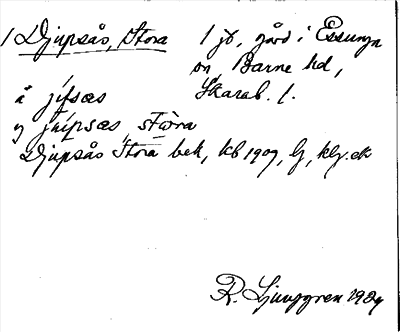 1 Djupsås, Stora 1 jb, gård i Essunga
sn, Barne hd,
Skarab. l.
å jifsæs
y jüipsæs, stωra
Djupsås Stora bek, kb 1907, lj, klg. ek
R. Ljunggren 1929